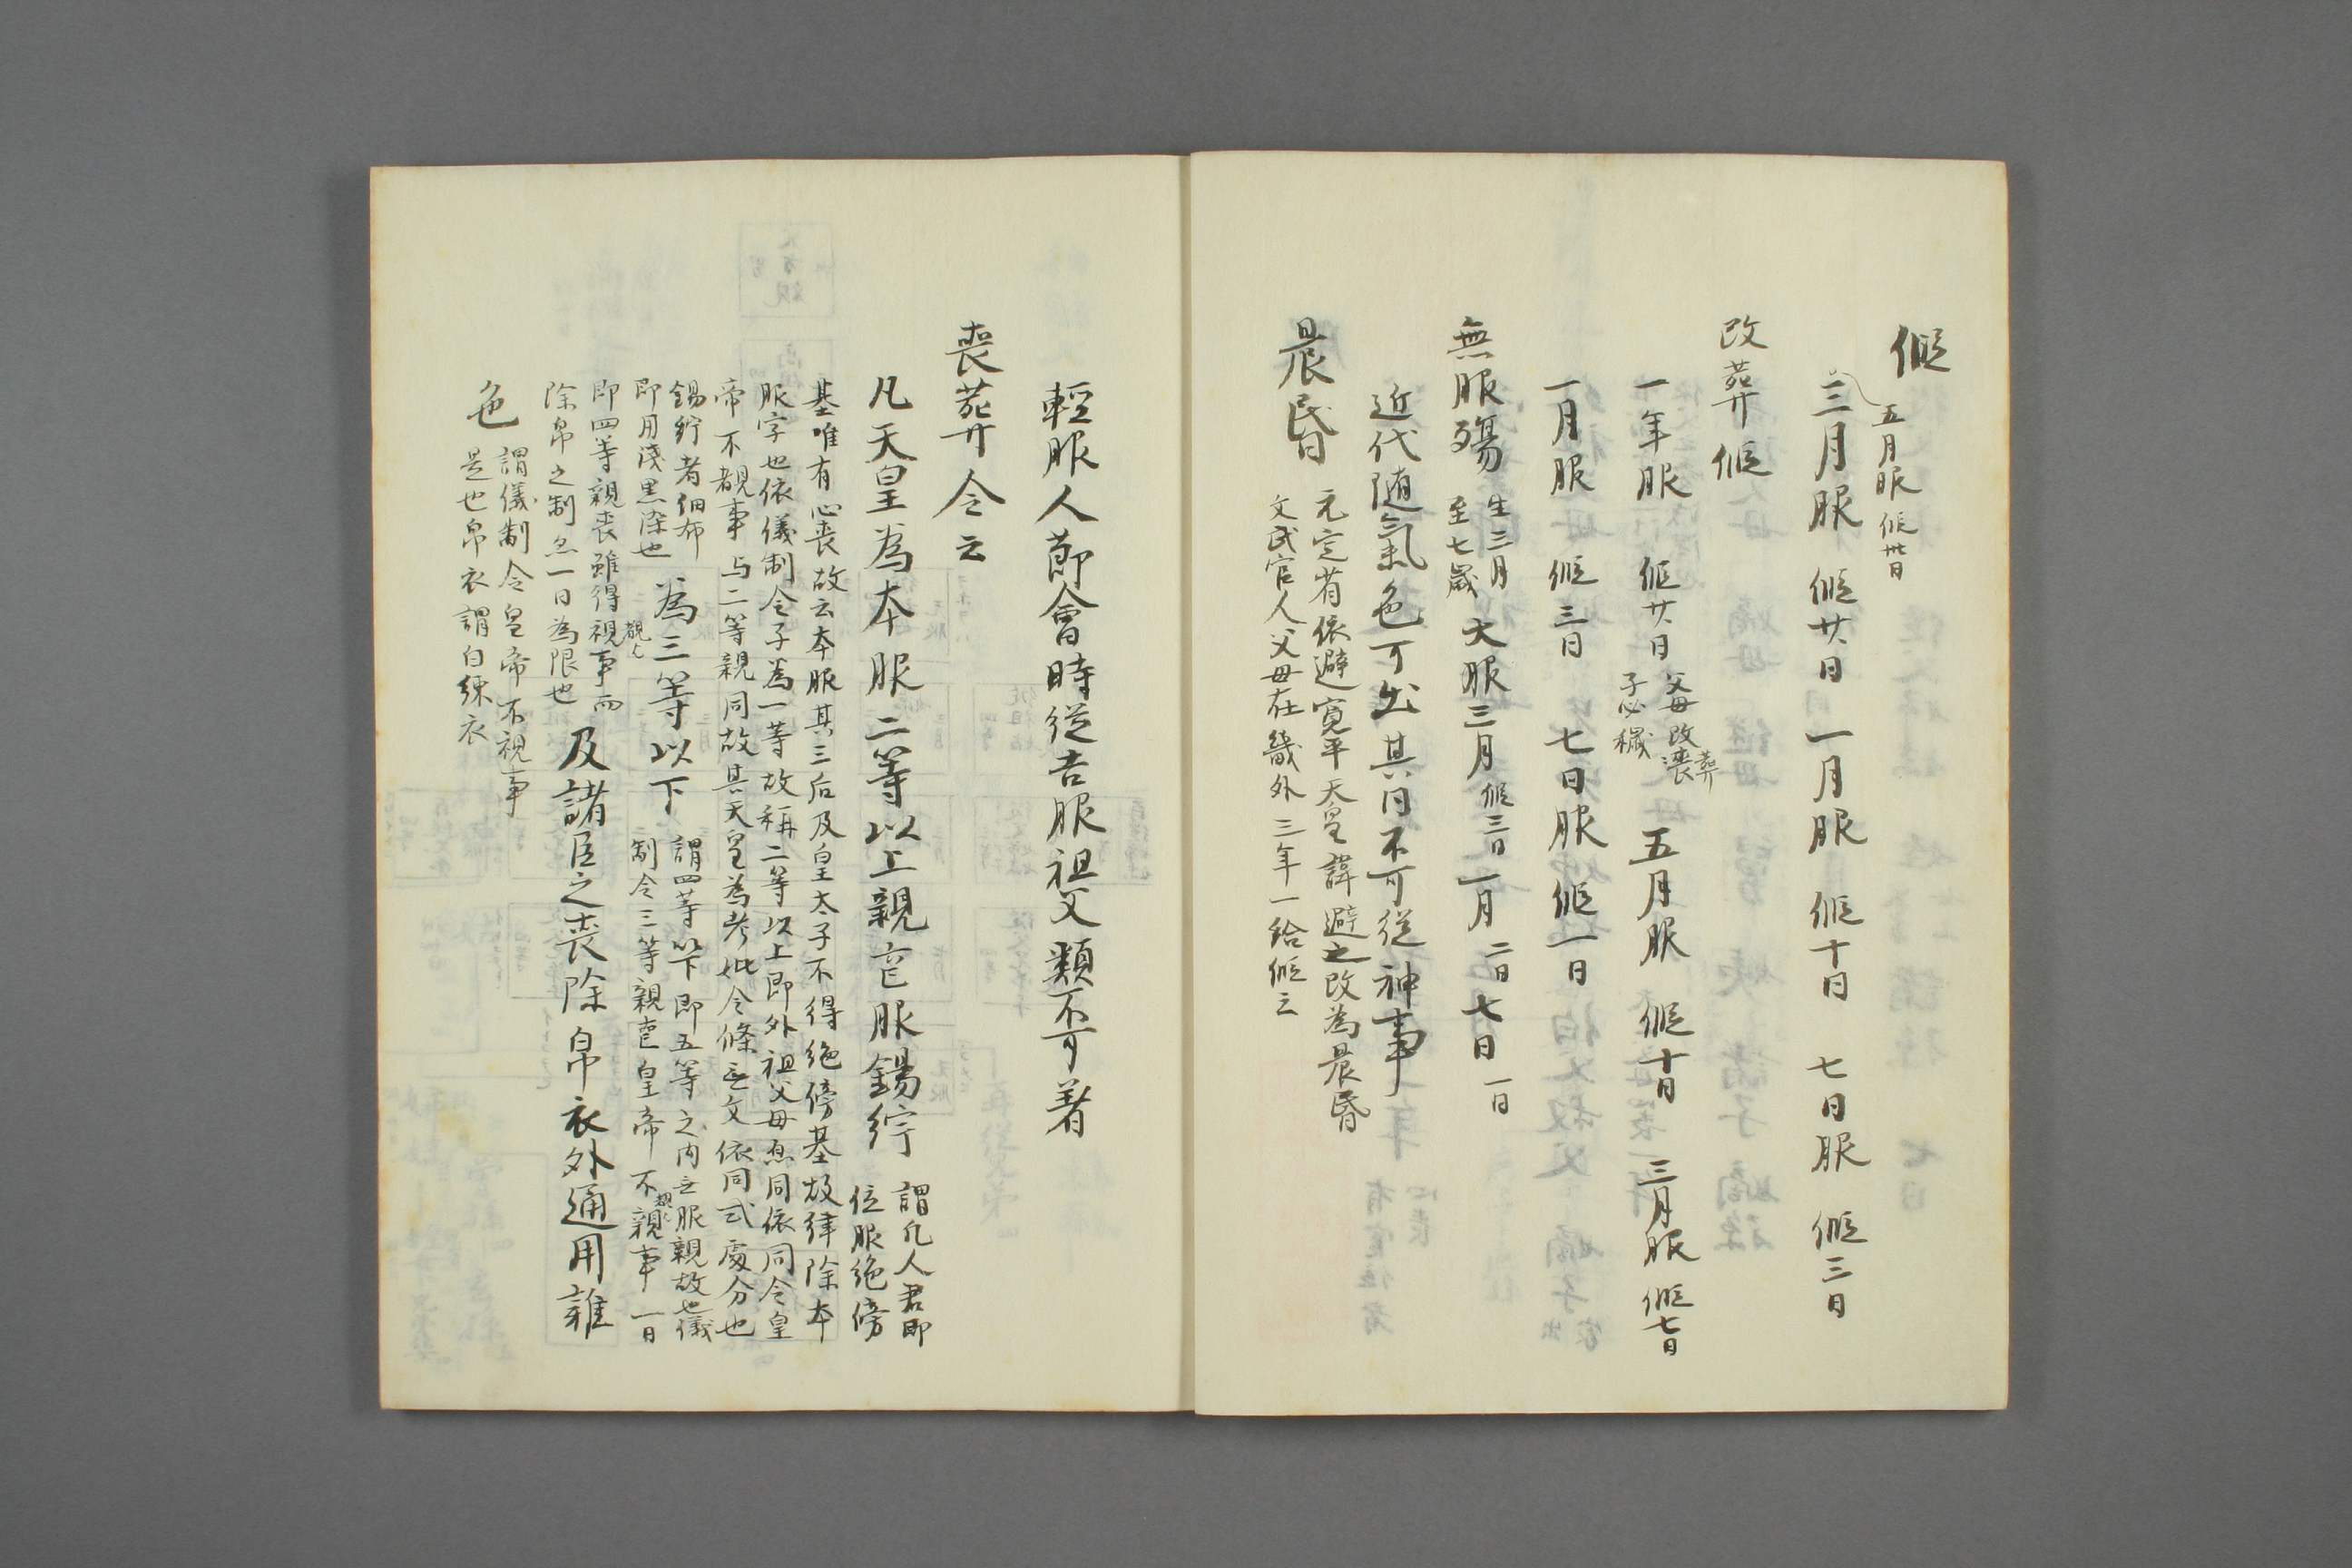 假
五月服 假卅日
三月服 假廿日 一月服 假十日 七日服 假三日
改葬假
一年服 假廿日 父母改葬喪 子必穢 五月服 假十日 三月服 假七日
一月服 假三日 七日服 假一日
無服殤 生三月至七歳 大服三月 假三日 一月 二日 七日 一日
近代随氣色可出其间不可従神事
晨昏 元定省依避寛平天皇諱避之改為晨昏
文武官人父母在畿外三年一給假云
輕服人節會時従吉服祖父類不可着
喪葬令云
凡天皇為本服二等以上親喪服錫紵 謂凡人君即位服絶傍
基唯有心喪故云本服其三后及皇太子不得絶傍基故律除本
服字也依儀制令子為一等故称二等以上即外祖父母亦同依同令皇
帝不覩事与二等親同故其天皇為考妣令條无文依同式處分也
錫紵者細布即用浅黒染也 為三等以下 謂四等以下即五等之内无服親故也儀
制令三等親喪皇帝不親事一日
即四等親喪雖得視事而
除帛之制亦一日為限也 及諸臣之喪除帛衣外通用雜
色 謂儀制令皇帝不視事
是也帛衣謂白練衣